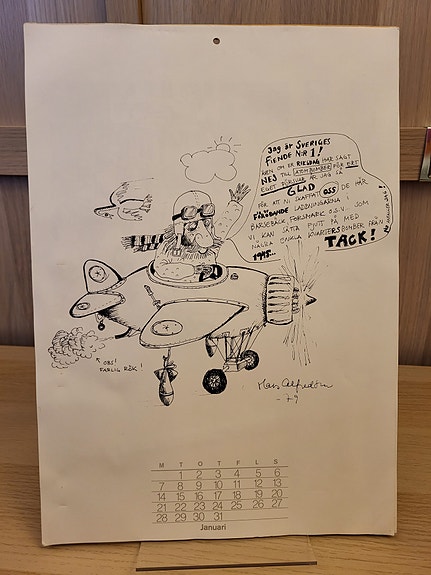 Jag är SVERIGES
FIENDE Nr 1!
MEN OM ER RIKSDAG HAR SAGT
NEJ TILL ATOMBOMBER FÖR ERT
EGET FÖRSVAR ÄR JAG SÅ
GLAD
FÖR ATT NI SKAFFAT OSS DE HÄR
FÖRÖDANDE LADDNINGARNA I
BARSEBÄCK, FORSMARK O.S.V. SOM
VI KAN SÄTTA FYTT PÅ MED
NÅGRA ENKLA KVARTERSBOMBER FRÅN
1945...
TACK!
OBS!
FARLIG RÖK!
Hans Alfredson
-79
M T O T F L S
1 2 3 4 5 6
7 8 9 10 11 12 13
14 15 16 17 18 19 20
21 22 23 24 25 26 27
28 29 30 31
Januari